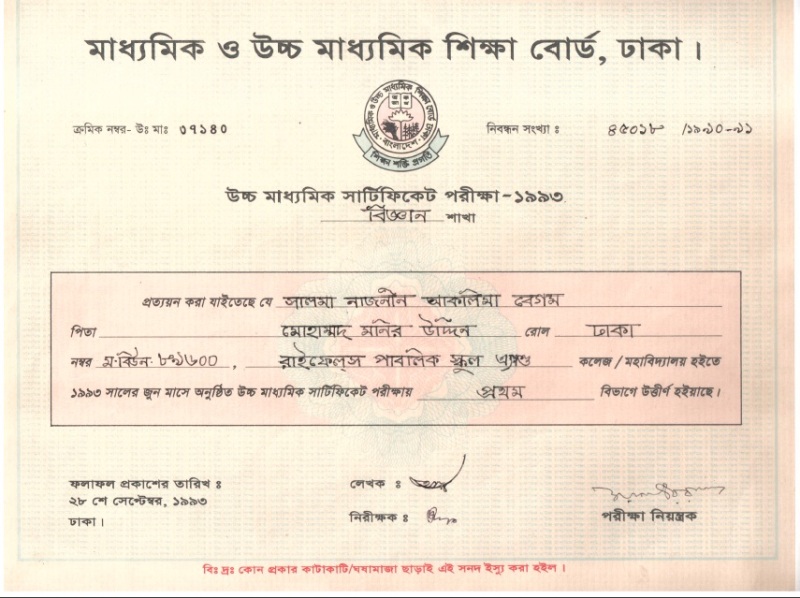 মাধ্যমিক ও উচ্চ মাধ্যমিক শিক্ষা বোর্ড, ঢাকা।
ক্রমিক নম্বর- উঃ মাঃ ০৭১৪০
নিবন্ধন সংখ্যা : ৪৫০১৮ /১৯৯০-৯১
শিক্ষা শক্তি প্রগতি
উচ্চ মাধ্যমিক সার্টিফিকেট পরীক্ষা-১৯৯৩
বিজ্ঞান শাখা
প্রত্যয়ন করা যাইতেছে যে সালমা নাজনীন আকলিমা বেগম
পিতা মোহাম্মদ মনির উদ্দিন রোল ঢাকা
নম্বর ম-বিউন- ৮৭১৬০০, রাইফেলস পাবলিক স্কুল এণ্ড কলেজ / মহাবিদ্যালয় হইতে
১৯৯৩ সালের জুন মাসে অনুষ্ঠিত উচ্চ মাধ্যমিক সার্টিফিকেট পরীক্ষায় প্রথম বিভাগে উত্তীর্ণ হইয়াছে।
ফলাফল প্রকাশের তারিখ :
২৮ শে সেপ্টেম্বর, ১৯৯৩
ঢাকা।
লেখক :
নিরীক্ষক :
পরীক্ষা নিয়ন্ত্রক
বিঃ দ্রঃ কোন প্রকার কাটাকাটি/ঘষামাজা ছাড়াই এই সনদ ইস্যু করা হইল।